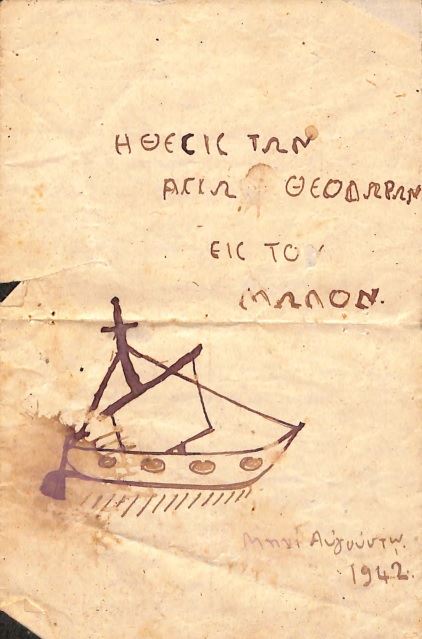 Η ΘΕCΙC ΤΩΝ
ΑΓΙΩ ΘΕΟΔΩΡΩΝ
ΕΙC ΤΟΥ
ΜΩΛΟΝ.
Μηνί Αὐγούστῳ
1942.